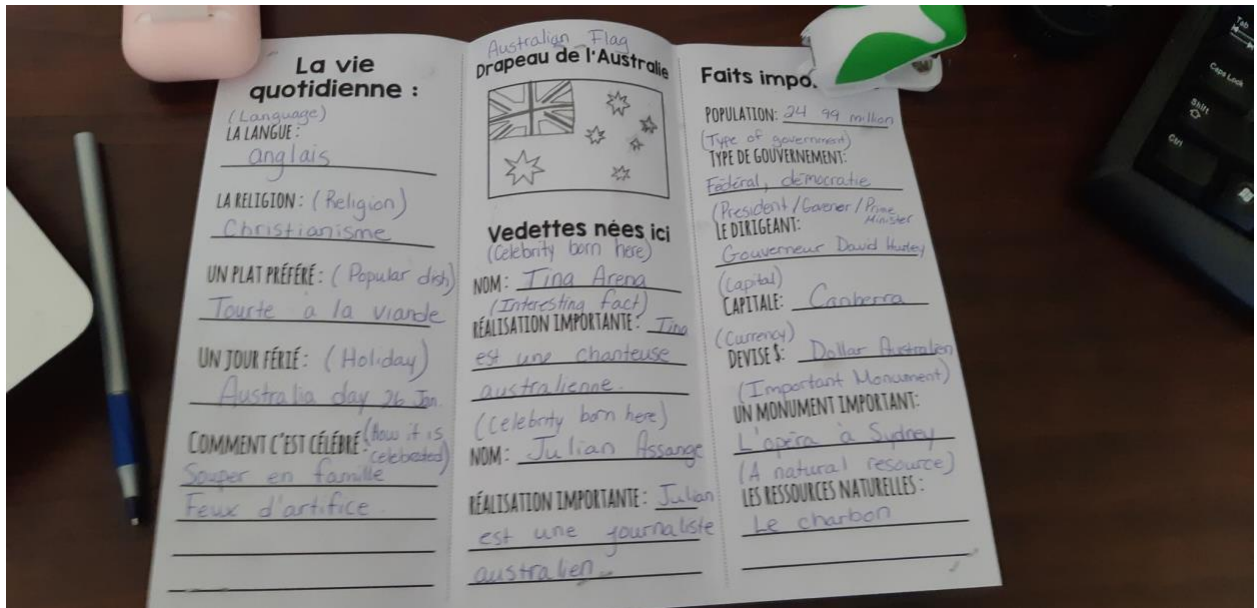 La vie
quotidienne :
(Language)
LA LANGUE :
anglais
LA RELIGION : (Religion)
Christianisme
UN PLAT PRÉFÉRÉ : (Popular dish)
Tourte à la viande
UN JOUR FÉRIÉ : (Holiday)
Australia day 26 Jan.
COMMENT C'EST CÉLÉBRÉ : (how it is
celebated)
Souper en famille
Feux d'artifice
Australian Flag
Drapeau de l'Australie
Vedettes nées ici
(Celebrity born here)
NOM : Tina Arena
(Interesting fact)
RÉALISATION IMPORTANTE : Tina
est une chanteuse
australienne.
(Celebrity born here)
NOM : Julian Assange
RÉALISATION IMPORTANTE : Julian
est une journaliste
australien.
Faits impo
POPULATION: 24 99 million
(Type of government)
TYPE DE GOUVERNEMENT:
Fédéral, démocratie
(President / Govener / Prime
Minister
LE DIRIGEANT:
Gouverneur David Hurley
(Capital)
CAPITALE: Canberra
(Currency)
DEVISE $: Dollar Australien
(Important Monument)
UN MONUMENT IMPORTANT:
L'opéra à Sydney
(A natural resource)
LES RESSOURCES NATURELLES :
Le charbon
Tab
Caps Lock
Shift
Ctrl